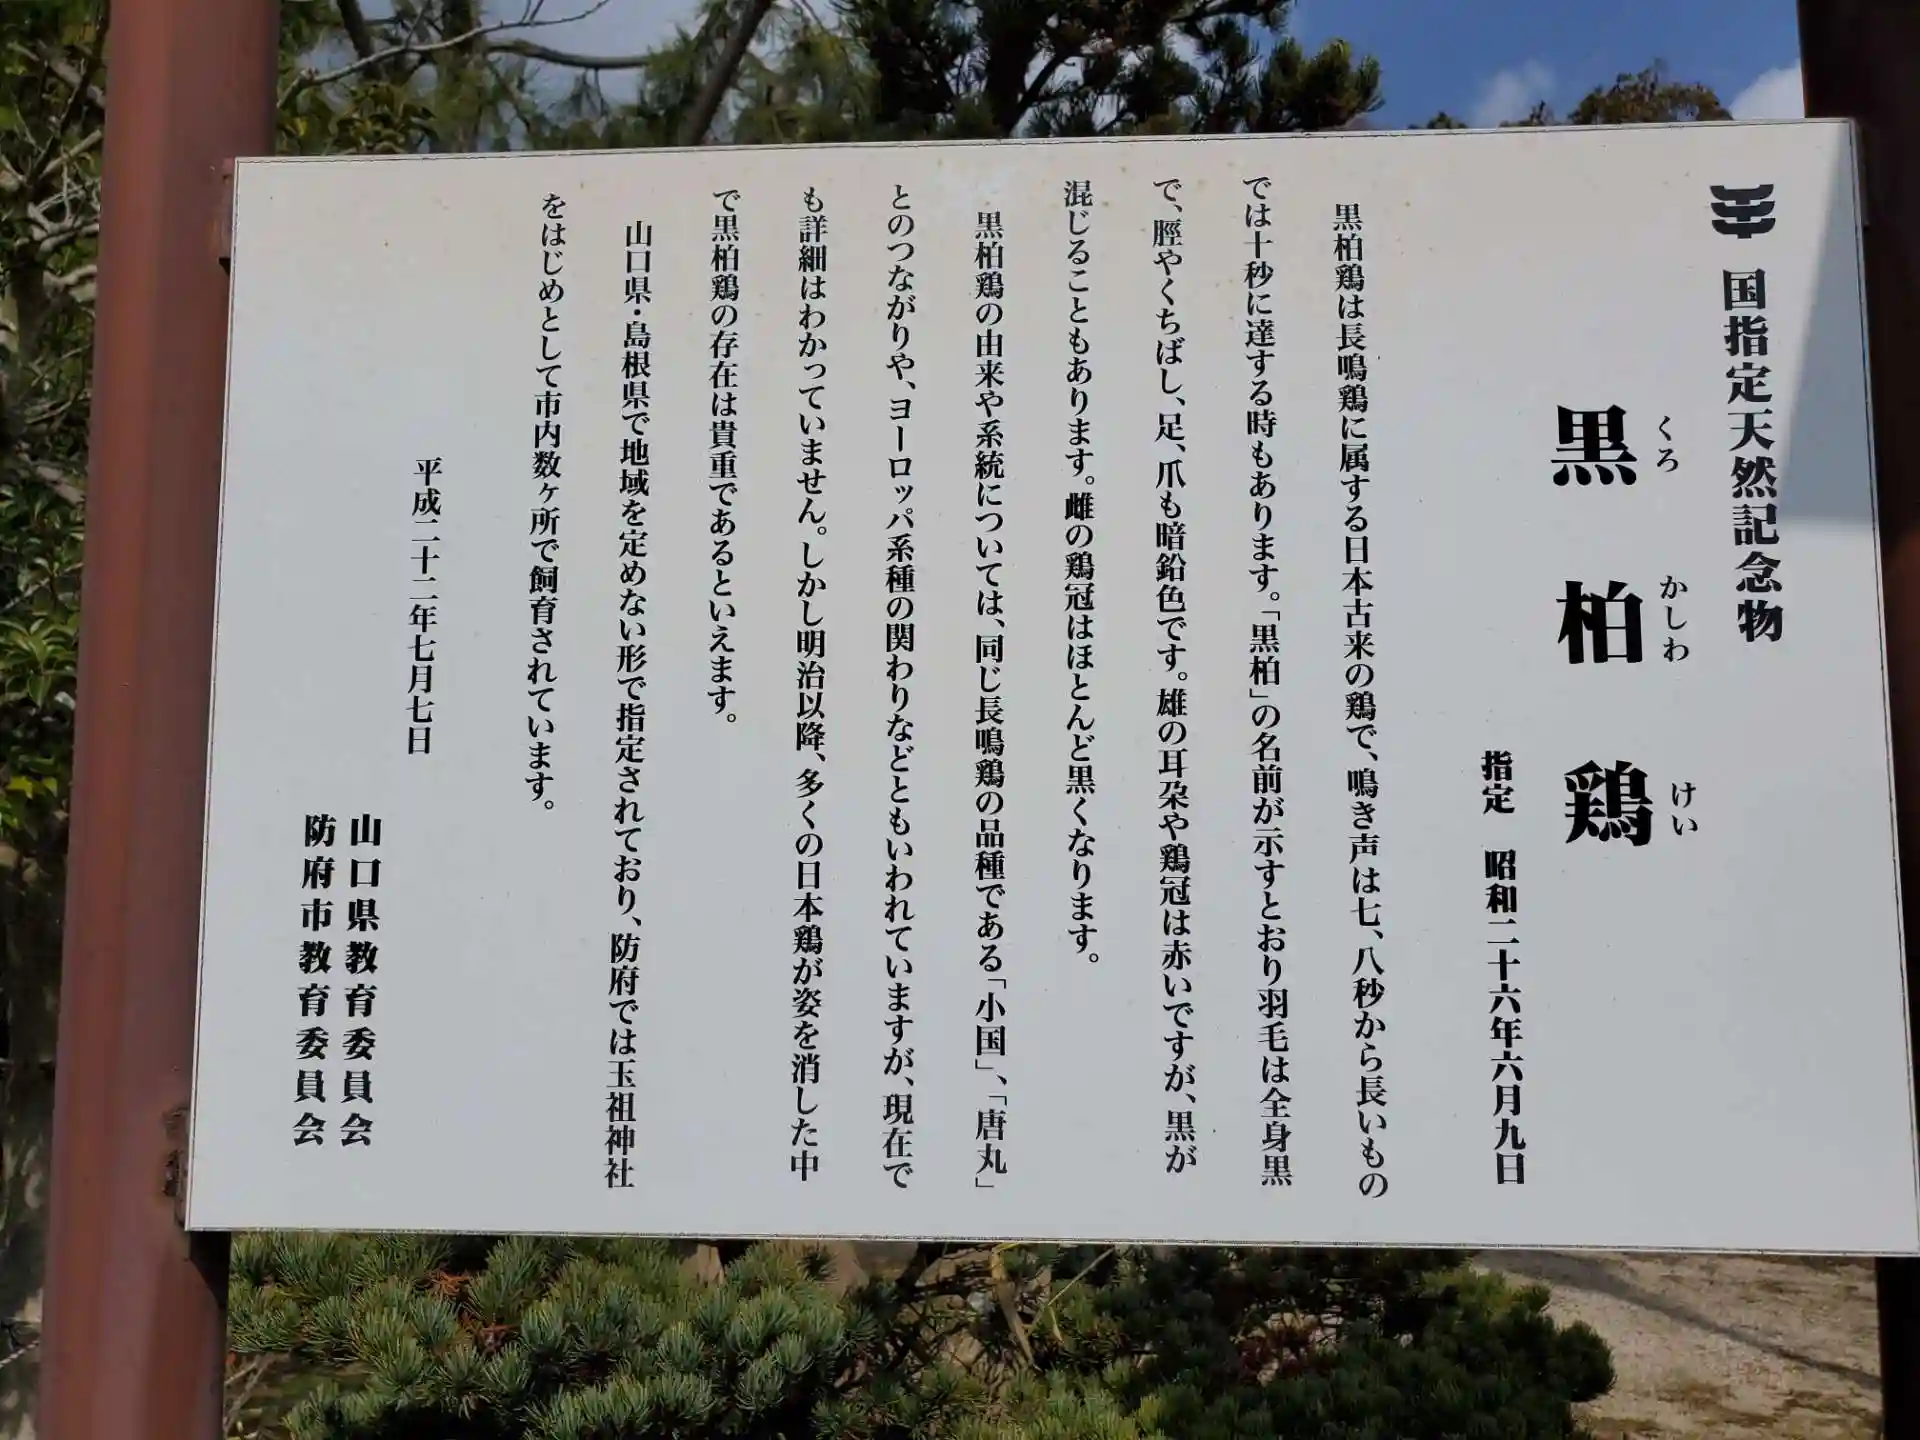 国指定天然記念物
黒柏鶏
くろ かしわ けい
指定 昭和二十六年六月九日
黒柏鶏は長鳴鶏に属する日本古来の鶏で、鳴き声は七、八秒から長いもの
では十秒に達する時もあります。「黒柏」の名前が示すとおり羽毛は全身黒
で、脛やくちばし、足、爪も暗鉛色です。雄の耳朶や鶏冠は赤いですが、黒が
混じることもあります。雌の鶏冠はほとんど黒くなります。
黒柏鶏の由来や系統については、同じ長鳴鶏の品種である「小国」、「唐丸」
とのつながりや、ヨーロッパ系種の関わりなどともいわれていますが、現在で
も詳細はわかっていません。しかし明治以降、多くの日本鶏が姿を消した中
で黒柏鶏の存在は貴重であるといえます。
山口県・島根県で地域を定めない形で指定されており、防府では玉祖神社
をはじめとして市内数ヶ所で飼育されています。
平成二十二年七月七日
山口県教育委員会
防府市教育委員会